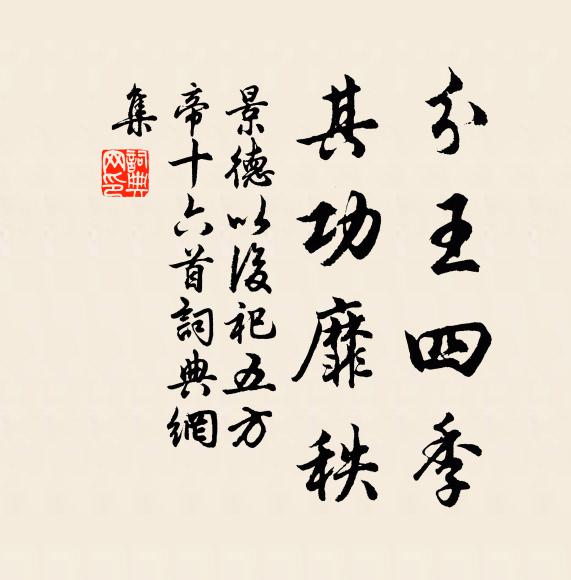 分王四季
其功靡秩
景德以後祀五方
帝十六首詞典網
集
詞典网印